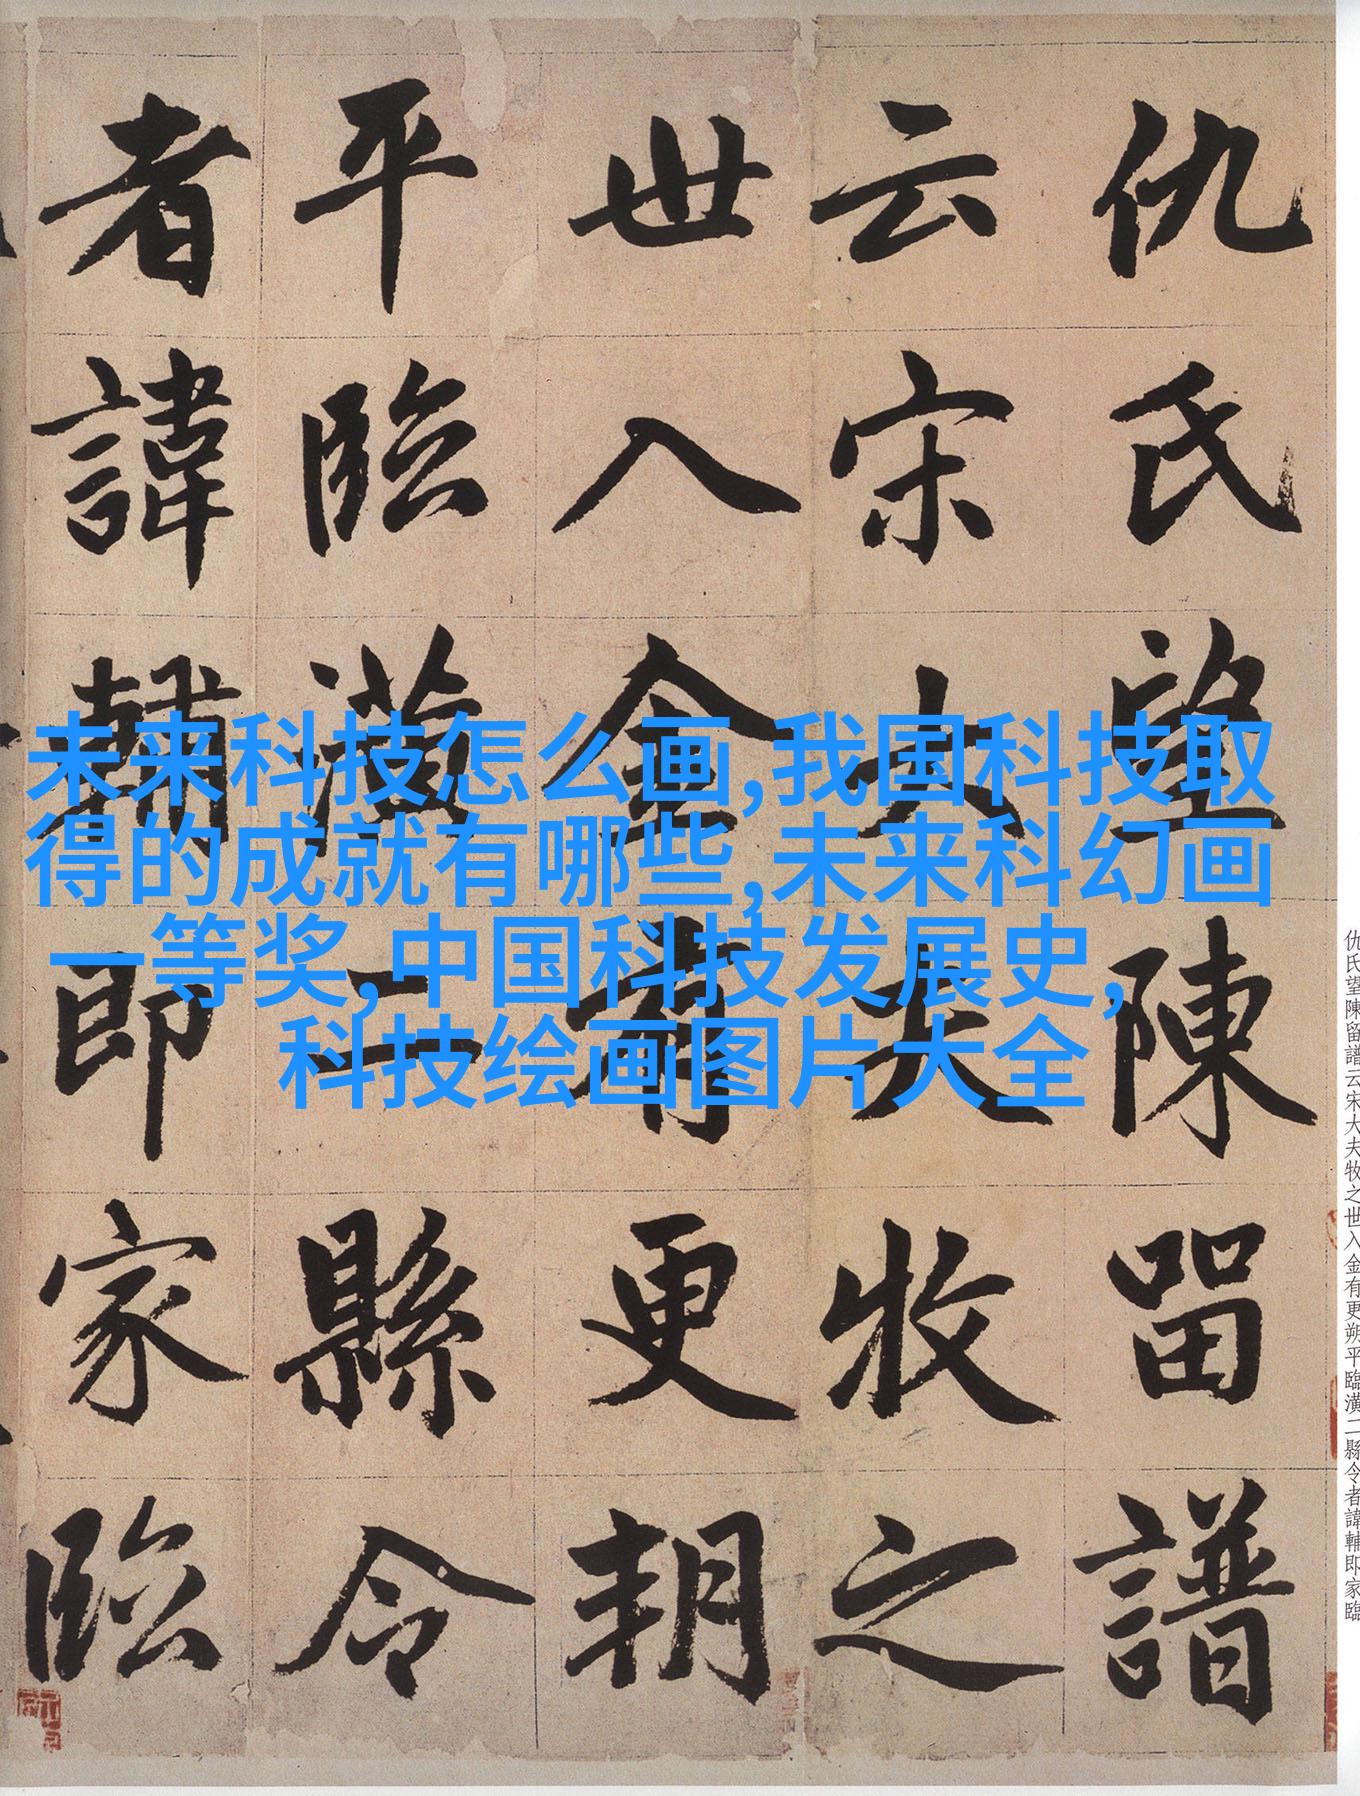 仇氏望陳留譜
云宋大夫牧之
世入金有更朔
平臨潢二縣令
者諱輔即家臨
未来科技怎么画,我国科技取
得的成就有哪些,未来科幻画
一等奖,中国科技发展史,
科技绘画图片大全
仇氏望陳留譜云宋大夫牧之世入金有更朔平臨潢二縣令者諱輔即家臨